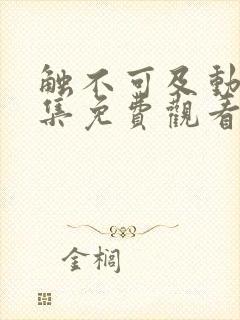 触不可及動
集免費觀看
金榈